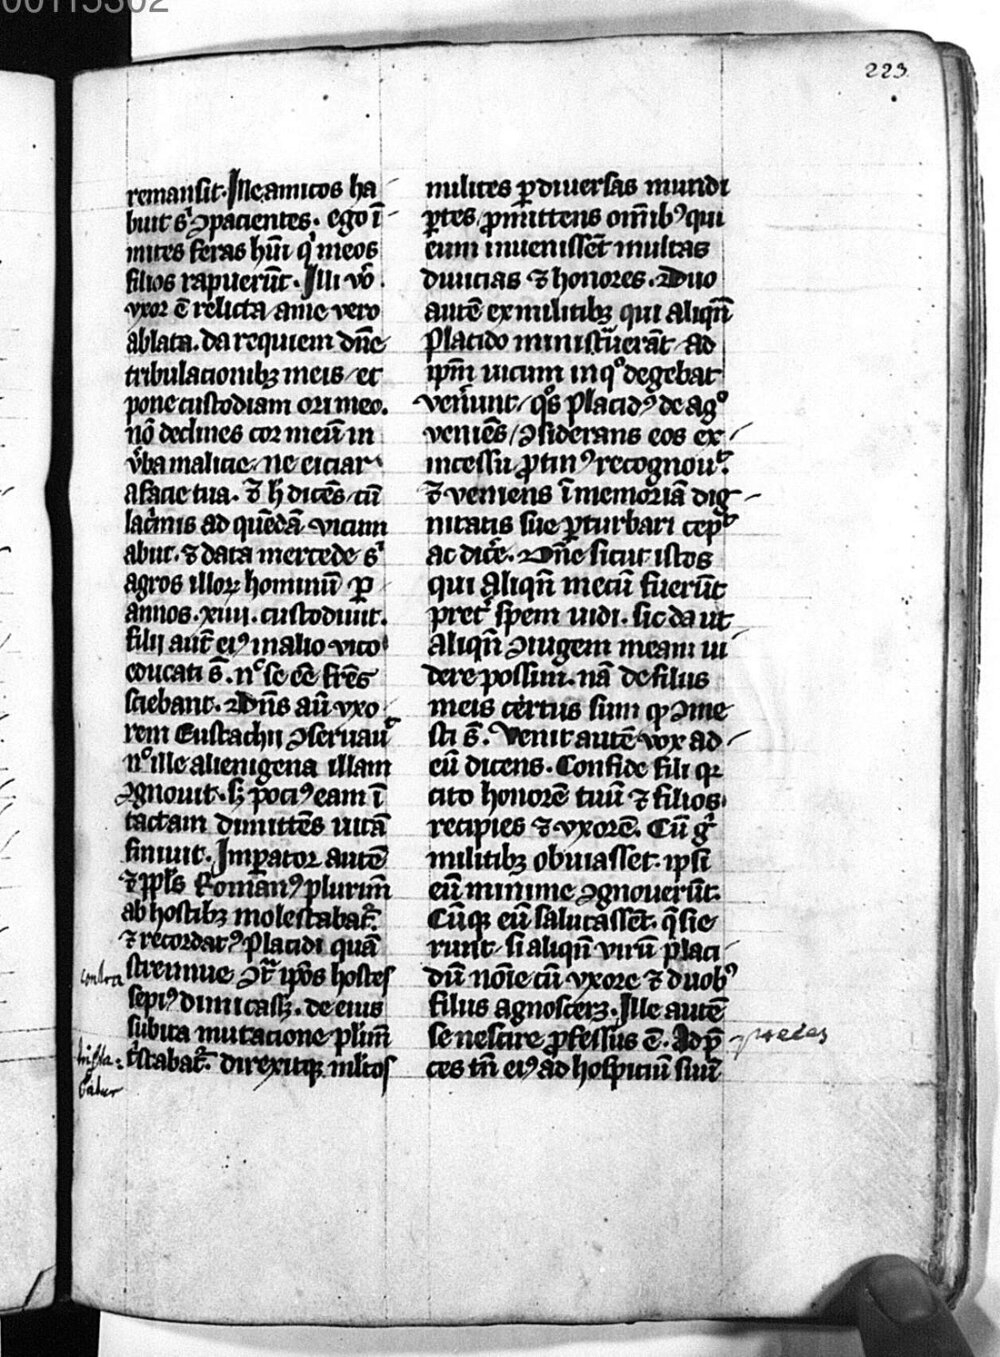 00115302
223
remansit. Ille amicos ha
buit sꝫ ꝯpacientes. ego ī
mites feras hūi q̄ meos
filios rapuerūt. Illi vō
vxor ē relicta a me vero
ablata. da requiem dn̄e
tribulacionibꝫ meis et
pone custodiam ori meo.
nō declines cor meū in
v̄ba malicie. ne eiciar
a facie tua. ⁊ h̄ dicēs cū
lac̄mis ad quēdā vicum
abiit. ⁊ data mercede sꝰ
agros illoꝝ hominū ꝑ
annos .xiiii. custodiuit.
filij aut̄ eiꝰ in alio vico
educati s̄. nͨ se eē fr̄es
sciebant. Dn̄s aū vxo
rem Eustachii ꝯseruauͭ
nͨ ille alienigena illam
ꝯgnouit. sꝫ pociꝰ eam ī
tactam dimittēs vitā
finiuit. Imꝑator autē
⁊ ppl̄s Romanꝰ plurim̄
ab hostibꝫ molestabat᷑.
⁊ recordatꝰ Placidi quā
contra strennue ꝯt̄ ip̄os hostes
sepiꝰ dimicassꝫ. de eius
subita mutacione pl̄im̄
trista= t̓stabat᷑. direxitqꝫ mil̓tos
batur
milites ꝑ diuersas mundi
ꝑtes ꝓmittens om̄ibꝰ qui
eum inuenissēt multas
diuicias ⁊ honores. Duo
autē ex militibꝫ qui aliqn̄
Placido ministͣuerāt ad
ip̄m vicum in qͦ degebat
venͥunt. qͦs Placidꝰ de agͦ
veniēs ꝯsiderans eos ex
incessu ꝓtinꝰ recognouͭ.
⁊ veniens ī memoriā dig
nitatis sue ꝑturbari cepͭ
ac dicͤe. Dn̄e sicut istos
qui aliqn̄ mecū fuerūt
pretͬ spem uidi. sic da ut
aliqn̄ ꝯiugem meam ui
dere possim. nā de filiis
meis certus sum ꝙ ꝯme
sti s̄. Venit autē vox ad
eū dicens. Confide fili qꝛ
cito honorē tuū ⁊ filios
recipies ⁊ vxorē. Cū gͦ
militibꝫ obuiasset. ipsi
eū minime ꝯgnouerūt.
Cūqꝫ eū salutassēt. q̄sie
runt si aliqn̄ virū placi
dū nōie cū vxore ⁊ duobꝰ
filiis agnosceꝫ. Ille autē
se nescire ꝓfessus ē. Ad p̄ -preces
ces tn̄ eiꝰ ad hospiciū suū